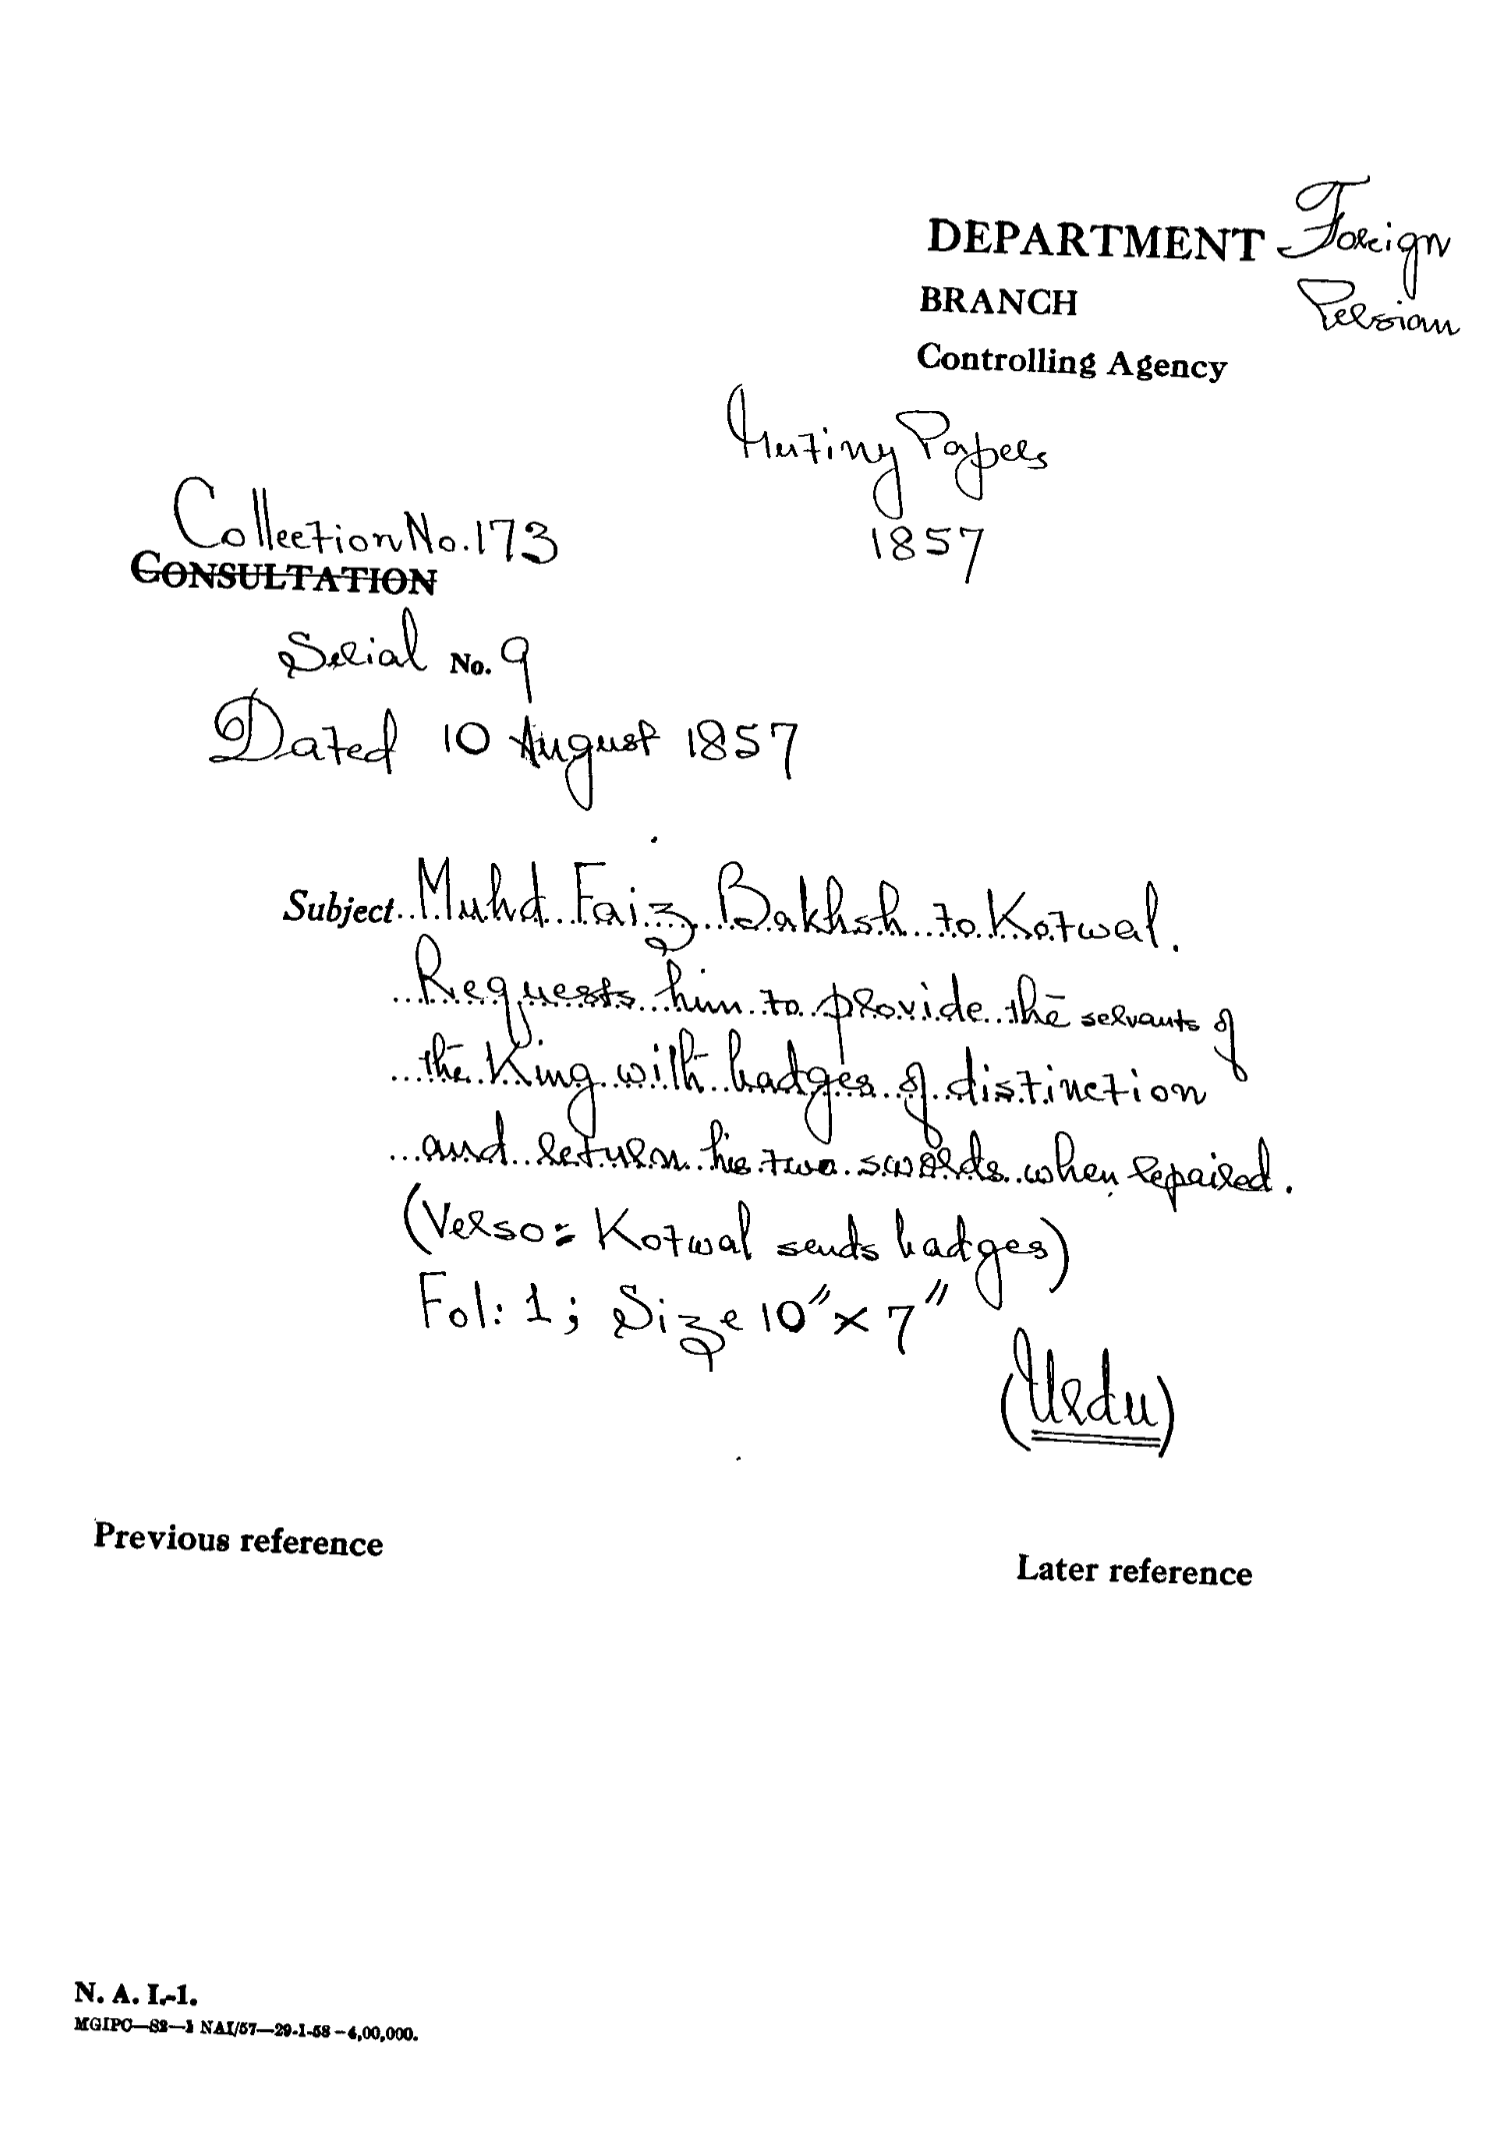 DEPARTMENT Foreign
BRANCH Persian
Controlling Agency
Mutiny Papers
1857
Collection No. 173
CONSULTATION
Serial No. 9
Dated 10 August 1857
Subject Muhd Faiz Bakhsh to Kotwal.
Requests him to provide the servants of
the King with badges of distinction
and return his two swords when repaired.
(Verso = Kotwal sends badges)
Fol: 1; Size 10" x 7"
(Urdu)
Previous reference
Later reference
N. A. I.-1.
MGIPC—S2—1 NAI/57—29-1-58—4,00,000.